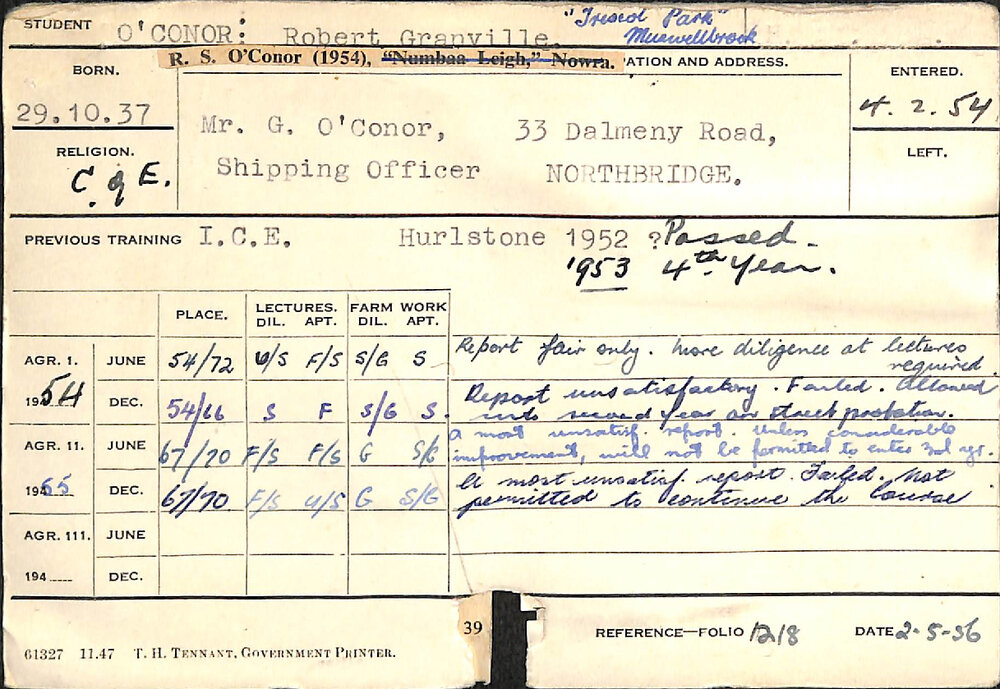 STUDENT O'CONOR: Robert Granville. "Tresco Park"
Muswellbrook
R. S. O'Conor (1954), "Numbaa Leigh," Nowra. ATION AND ADDRESS.
BORN. ENTERED.
29.10.37 4. 2. 54
Mr. G. O'Conor, 33 Dalmeny Road,
RELIGION. LEFT.
C. of E. Shipping Officer NORTHBRIDGE.
PREVIOUS TRAINING I.C.E. Hurlstone 1952 ? Passed.
1953 4th Year.
PLACE. LECTURES. FARM WORK
DIL. APT. DIL. APT.
AGR. 1. JUNE 54/72 U/S F/S S/G S Report fair only. More diligence at lectures
required.
1954 DEC. 54/66 S F S/G S. Report unsatisfactory. Failed. Allowed
into second year on strict probation.
AGR. 11. JUNE 67/70 F/S F/S G S/G A most unsatisf. report. Unless considerable
improvement, will not be permitted to enter 3rd yr.
1955 DEC. 67/70 F/S U/S G S/G A most unsatisf report. Failed. Not
permitted to continue the course
AGR. 111. JUNE
194 DEC.
39
REFERENCE—FOLIO 1218 DATE 2-5-56
61327 11.47 T. H. TENNANT, GOVERNMENT PRINTER.